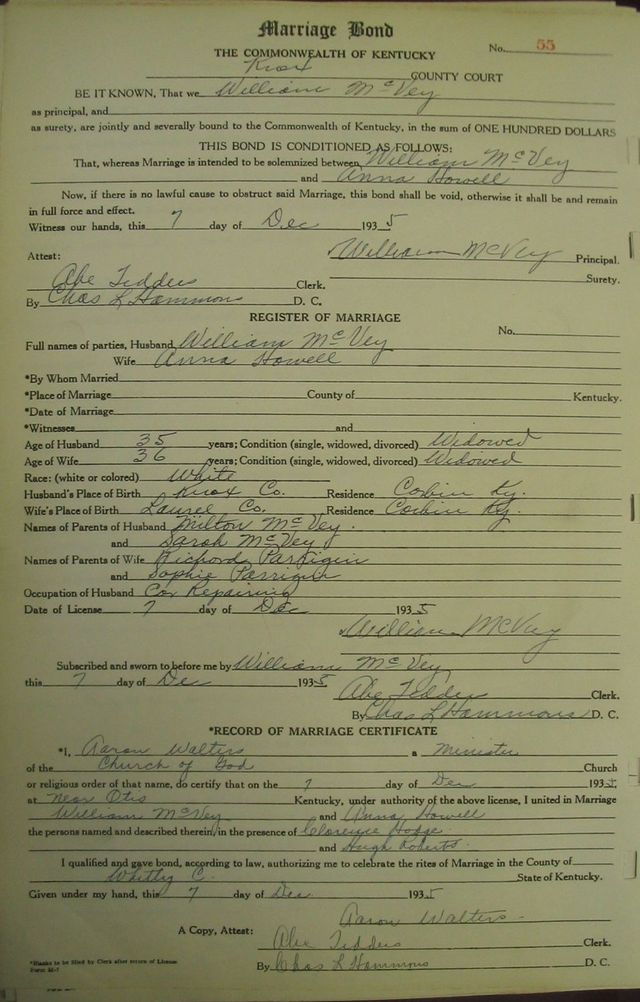 Marriage Bond
THE COMMONWEALTH OF KENTUCKY
No. 55
Knox COUNTY COURT
BE IT KNOWN, That we William McVey
as principal, and
as surety, are jointly and severally bound to the Commonwealth of Kentucky, in the sum of ONE HUNDRED DOLLARS
THIS BOND IS CONDITIONED AS FOLLOWS:
That, whereas Marriage is intended to be solemnized between William McVey
and Anna Howell
Now, if there is no lawful cause to obstruct said Marriage, this bond shall be void, otherwise it shall be and remain
in full force and effect.
Witness our hands, this 7 day of Dec 1935
William McVey Principal.
Attest:
Surety.
Abe Tedders Clerk.
By Chas L Hammons D. C.
REGISTER OF MARRIAGE
No.
Full names of parties, Husband William McVey
Wife Anna Howell
*By Whom Married
*Place of Marriage County of Kentucky.
*Date of Marriage
*Witnesses and
Age of Husband 35 years; Condition (single, widowed, divorced) Widowed
Age of Wife 36 years; Condition (single, widowed, divorced) Widowed
Race: (white or colored) White
Husband's Place of Birth Knox Co. Residence Corbin Ky.
Wife's Place of Birth Laurel Co. Residence Corbin Ky.
Names of Parents of Husband Milton McVey.
and Sarah McVey
Names of Parents of Wife Richard Parrigin
and Sophie Parrigin
Occupation of Husband Car Repairing
Date of License 7 day of Dec 1935
William McVey
Subscribed and sworn to before me by William McVey
this 7 day of Dec 1935
Abe Tedders Clerk.
By Chas L Hammons D. C.
*RECORD OF MARRIAGE CERTIFICATE
*I, Aaron Walters a Minister
of the Church of God Church
or religious order of that name, do certify that on the 7 day of Dec 1935
at Near Otis Kentucky, under authority of the above license, I united in Marriage
William McVey and Anna Howell
the persons named and described therein, in the presence of Clorence Hodge
and Hugh Roberts.
I qualified and gave bond, according to law, authorizing me to celebrate the rites of Marriage in the County of
Whitly C. State of Kentucky.
Given under my hand, this 7 day of Dec. 1935
Aaron Walters
A Copy, Attest:
Abe Tedders Clerk.
By Chas L Hammons D. C.
*Blanks to be filled by Clerk after return of License
Form M-7